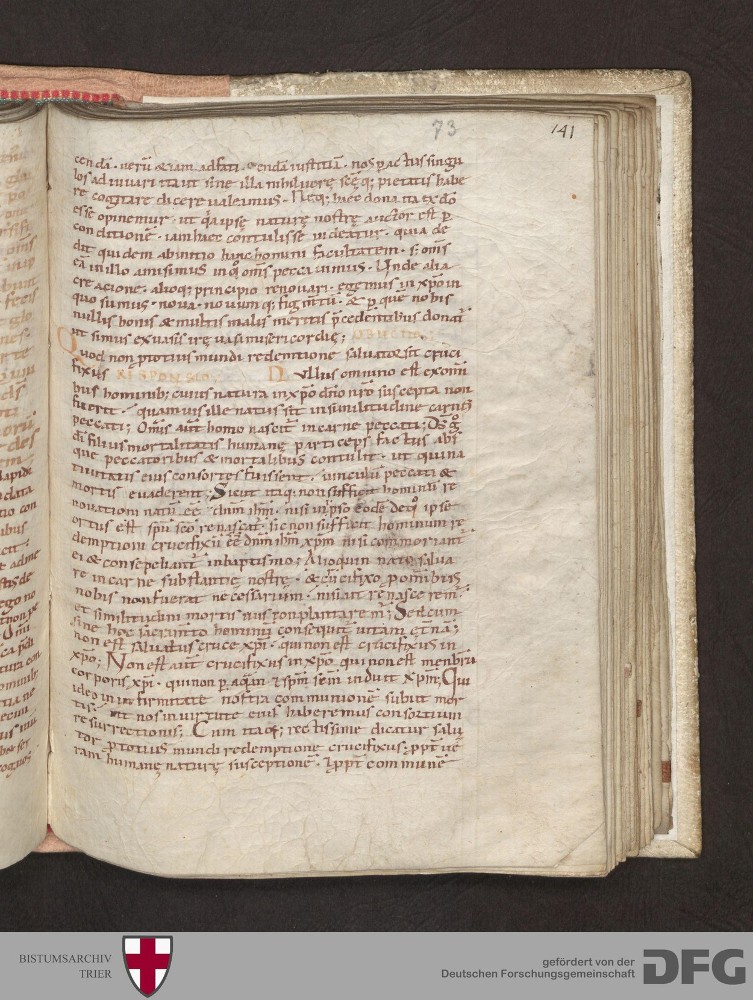 73
141
cendā · uerū & iam ad faci endā iustitiā · nos ꝑ actus singu
los adiuuari ita ut sine illa nihil uerę sc̄ęq; pietatis habe
re cogitare dicere ualeamus · Neq; hæc dona ita ex dō
esse opinemur · ut q̄a ipsę naturę nostrę auctor est ꝑ
conditionē · iam hæc contulisse uideatur · quia de
dit quidem ab initio hanc homini facultatem · s; om̄s
eā in illo amisimus in q̊ om̄s peccauimus · Unde alia
creacione · alioq; principio renouari · egemus in xp̄o in
quo sumus · noua · nouumq; figm̄tū · & ꝑ que nobis
nullis bonis & multis malis meritis p̄cedentibus donat̄
ut simus ex uasis irę uasa misericordię;
Quod non ꝓ totius mundi redemtione saluator sit cruci
fixus RESPONSIO. Nullus omnino est ex om̄i
bus hominib; cuius natura in xp̄o dn̄o nr̄o suscepta non
fuerit · quamuis ille natus sit in similitudine carnis
peccati; Om̄is aut̄ homo nascit̄ in carne peccati; Ds̄ g̊
dī filius mortalitatis humanę particeps factus abs
que peccato hoc
tiuitatis eius consortes fuissent · uinculū peccati &
mortis euaderent; Sicut itaq; non sufficit hominū re
nouationi natū eē dn̄m ihm̄ · nisi in ip̄so eodē de q̊ ipse
ortus est spū scō renascat̄ · sic non sufficit hominum re
demptioni crucifixū eē dn̄m ihm̄ xp̄m nisi commoriant̄
ei & consepeliant̄ in baptismo; Alioquin nato salua
re in carne substantię nostrę · & crucifixo ꝓ omnibus
nobis non fuerat necessarium · ut renascerem̄
et similitudini mortis eius complantarem̄; Sed cum
sine hoc sacram̄to hominū consequit̄ uitam et̄nā;
non est saluatus cruce xp̄i · qui non est crucifixus in
xp̄o; Non est aut̄ crucifixus in xp̄o qui non est membrū
corporis xp̄i · qui non ꝑ aquā & spm̄ scm̄ induit xp̄m; Qui
ideo in infirmitate nostra communionē subiit mor
tis · ut nos in uirtute eius haberemus consortium
resurrectionis; Cum itaq; rectissime dicatur salua
tor ꝓ totius mundi redemptione crucifixus · ꝓpt̄ ue
ram humanę naturę susceptionē · & ꝓpt̄ communē
BISTUMSARCHIV
TRIER
gefördert von der
Deutschen Forschungsgemeinschaft
DFG